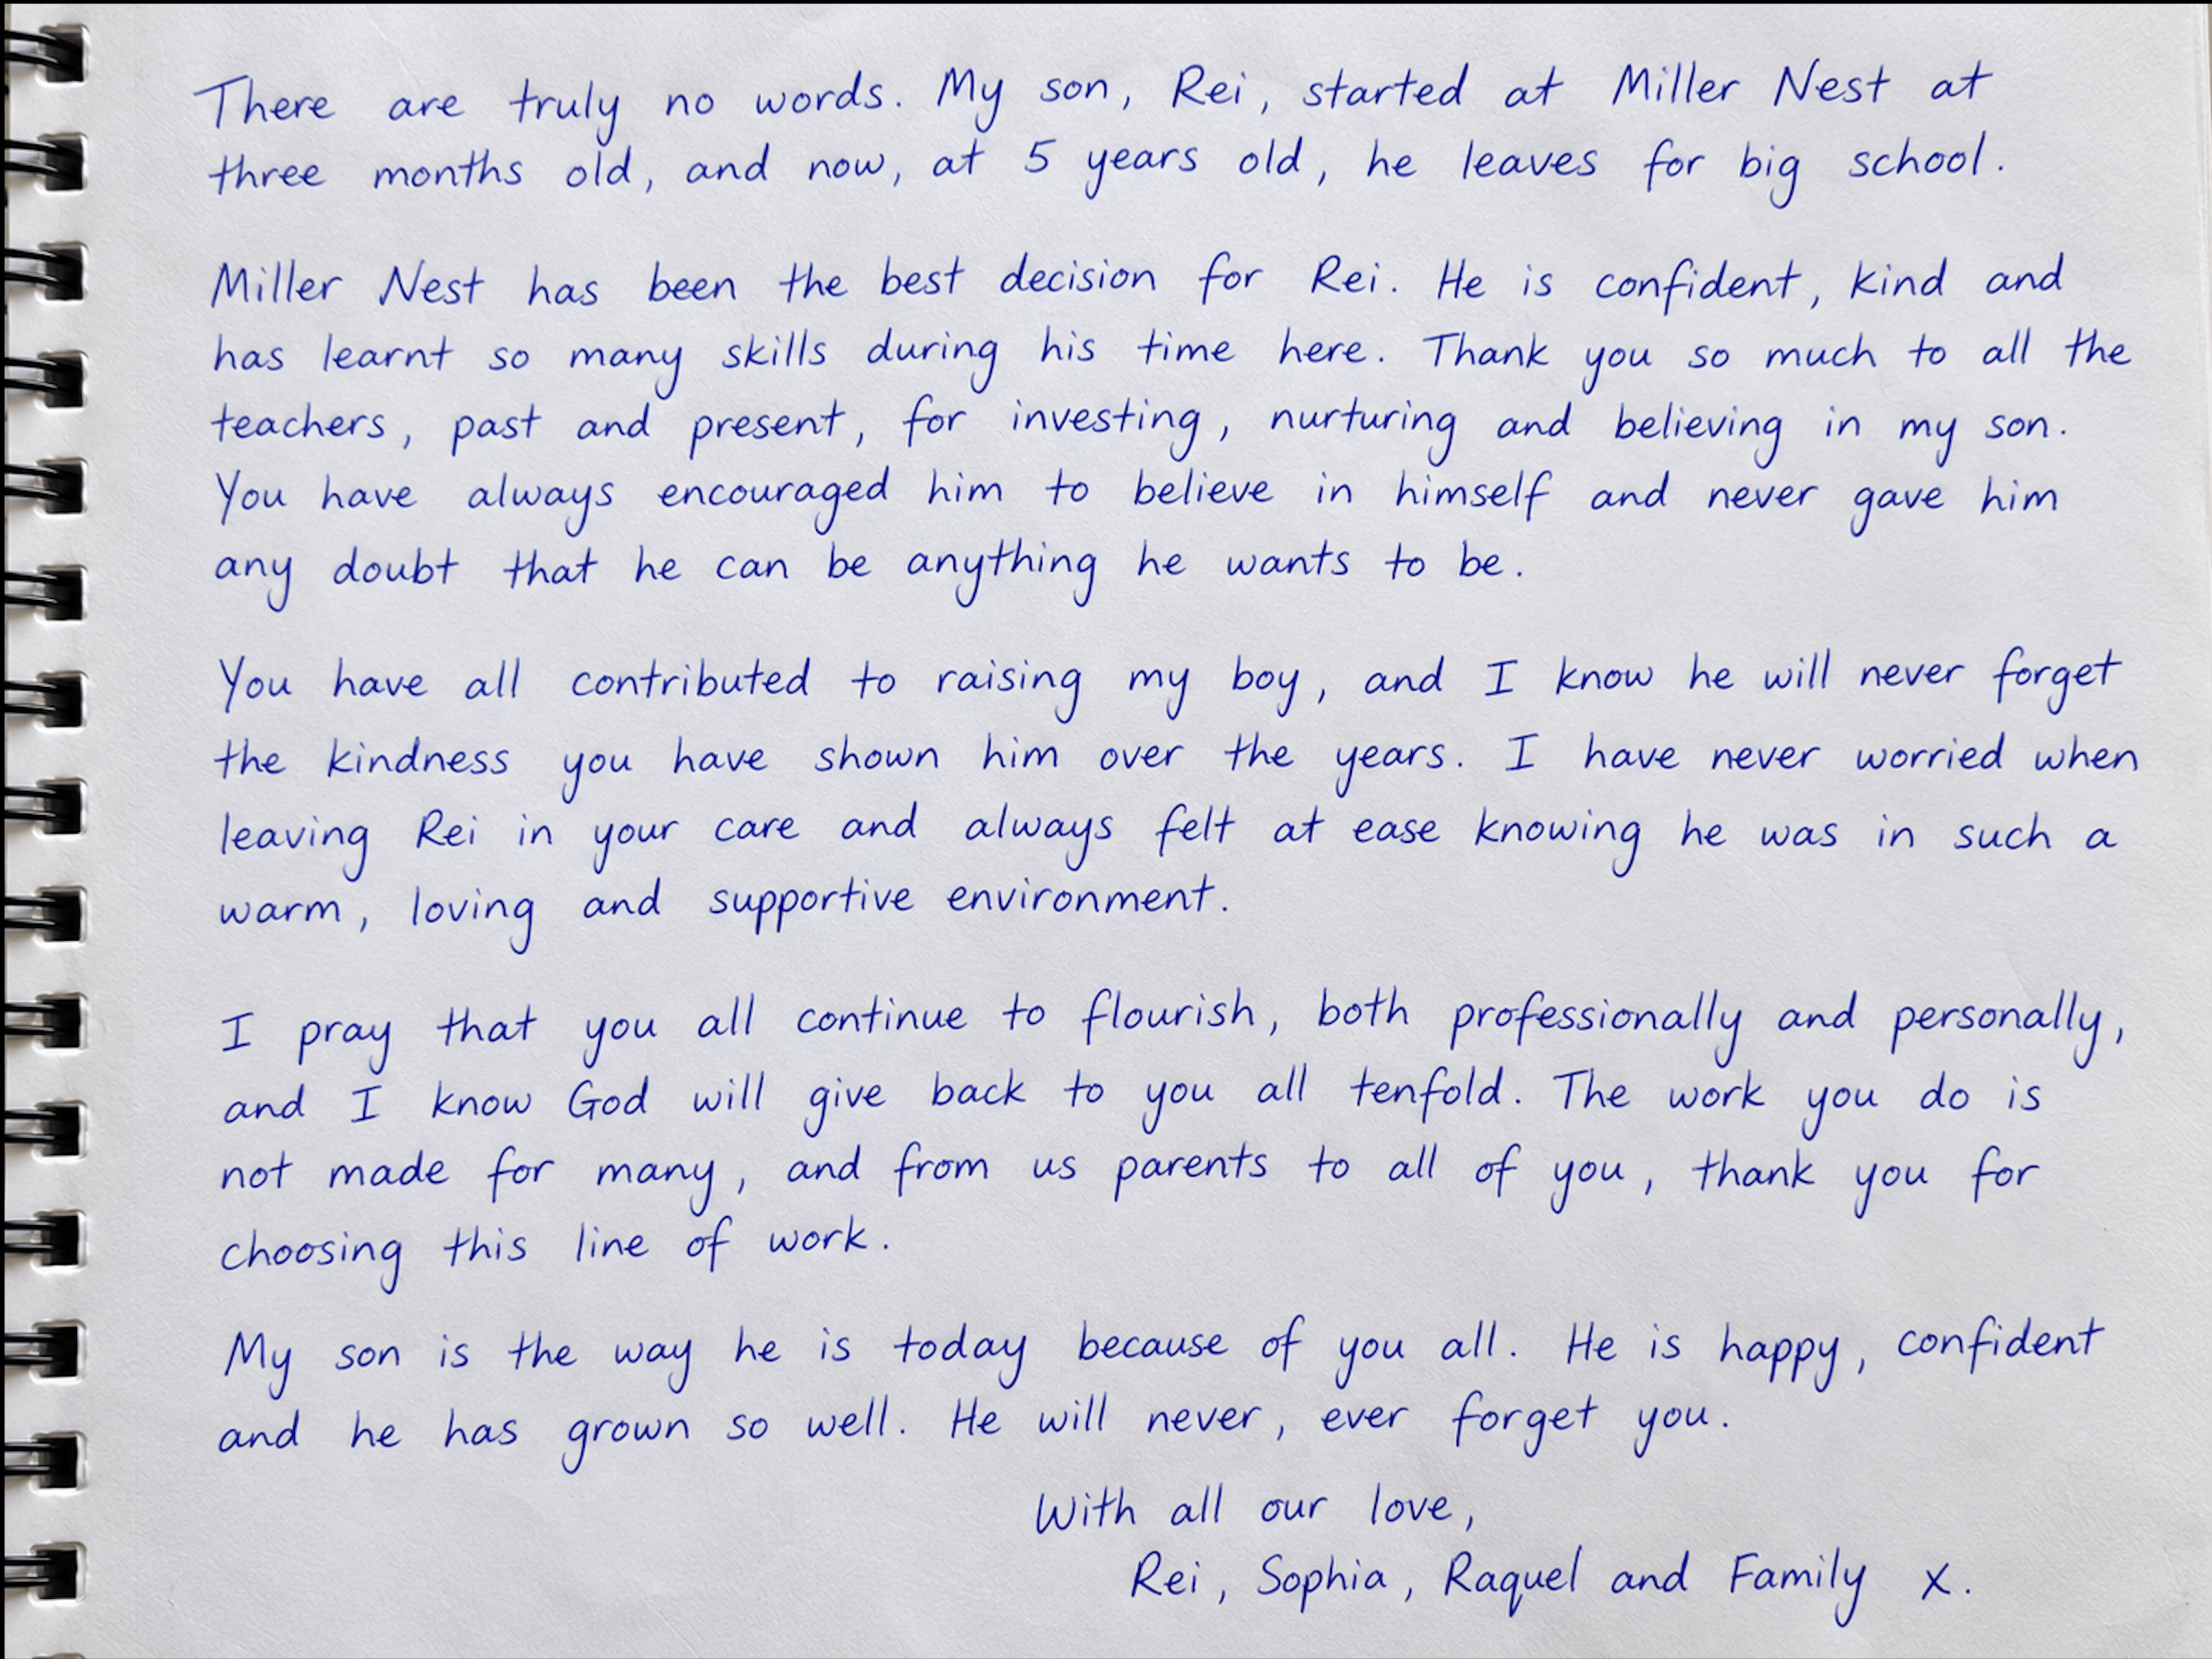 There are truly no words. My son, Rei, started at Miller Nest at
three months old, and now, at 5 years old, he leaves for big school.
Miller Nest has been the best decision for Rei. He is confident, kind and
has learnt so many skills during his time here. Thank you so much to all the
teachers, past and present, for investing, nurturing and believing in my son.
You have always encouraged him to believe in himself and never gave him
any doubt that he can be anything he wants to be.
You have all contributed to raising my boy, and I know he will never forget
the kindness you have shown him over the years. I have never worried when
leaving Rei in your care and always felt at ease knowing he was in such a
warm, loving and supportive environment.
I pray that you all continue to flourish, both professionally and personally,
and I know God will give back to you all tenfold. The work you do is
not made for many, and from us parents to all of you, thank you for
choosing this line of work.
My son is the way he is today because of you all. He is happy, confident
and he has grown so well. He will never, ever forget you.
With all our love,
Rei, Sophia, Raquel and Family x.